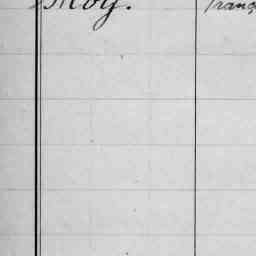 Moy. Franç